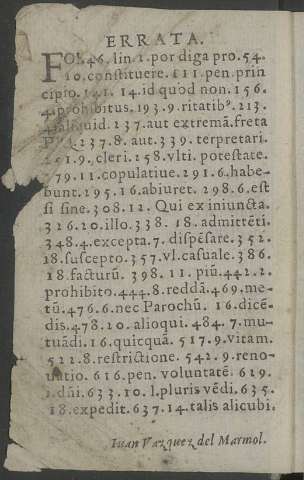 ERRATA.
FOL. 46. lin 1. por diga pro. 54.
10. constituere. 111. pen. prin
cipio. 141. 14. id quod non. 156.
4. prohibitus. 193. 9. ritatibꝰ. 213.
aliquid. 237. aut extremã. freta
237. 8. aut. 339. terpretari.
251. 9. cleri. 258. vlti. potestate.
279. 11. copulatiue. 291. 6. habe-
bunt. 295. 16. abiuret. 298. 6. est
si sine. 308. 12. Qui ex iniuncta.
326. 20. illo. 338. 18. admittẽti.
348. 4. excepta. 7. dispẽsare. 352.
18. suscepto. 357. vl. casuale. 386.
18. facturũ. 398. 11. piũ. 442. 2.
prohibito. 444. 8. reddã. 469. me-
tũ. 476. 6. nec Parochũ. 16. dicẽ-
dis. 478. 20. alioqui. 484. 7. mu-
tuãdi. 16. quitquã. 517. 9. vitam.
522. 8. restrictione. 542. 9. reno-
uatio. 616. pen. voluntatẽ. 629.
1. dñi. 633. 10. l. pluris vẽdi. 635.
18. expedit. 637. 14. talis alicubi.
Iuan Vazquez del Marmol.